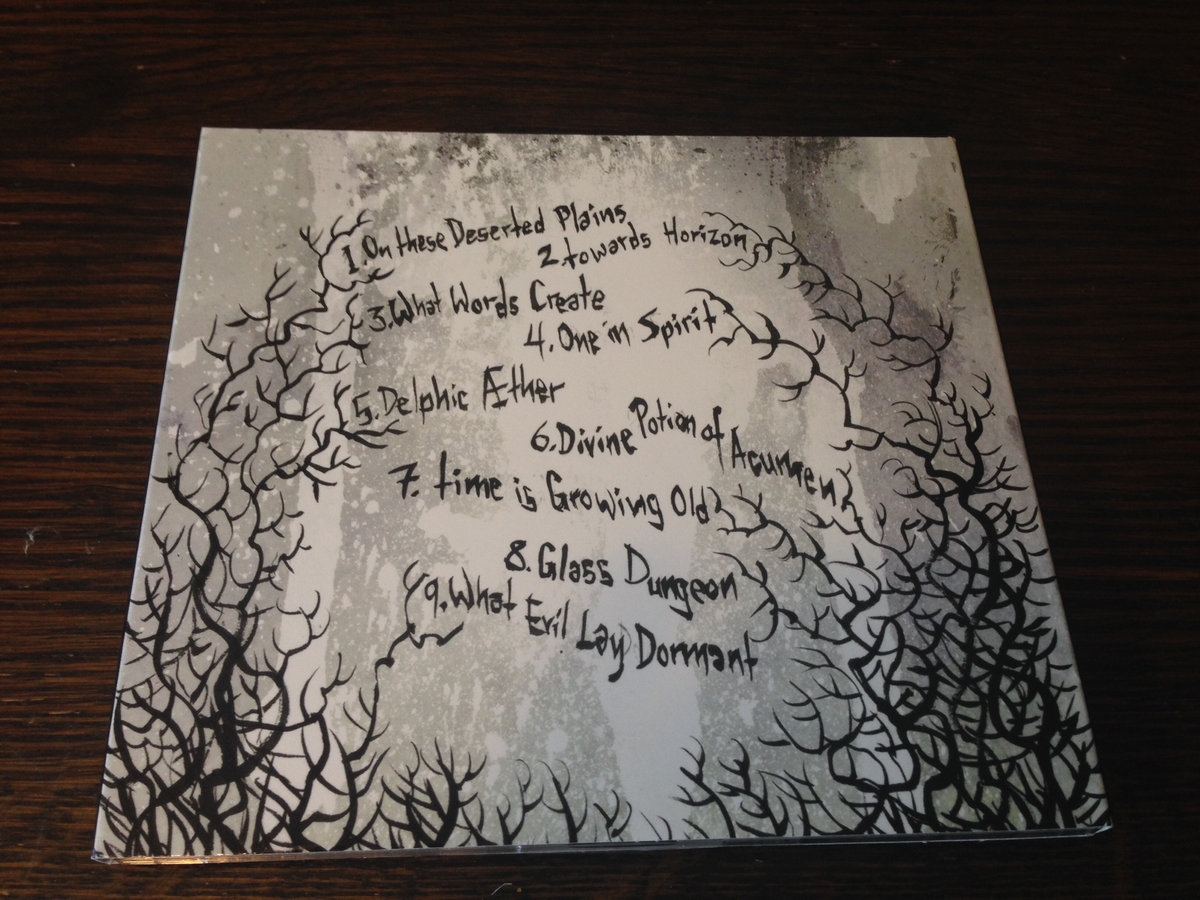 1. On these Deserted Plains
2. towards Horizon
3. What Words Create
4. One in Spirit
5. Delphic Æther
6. Divine Potion of Acumen
7. time is Growing Old
8. Glass Dungeon
9. What Evil Lay Dormant